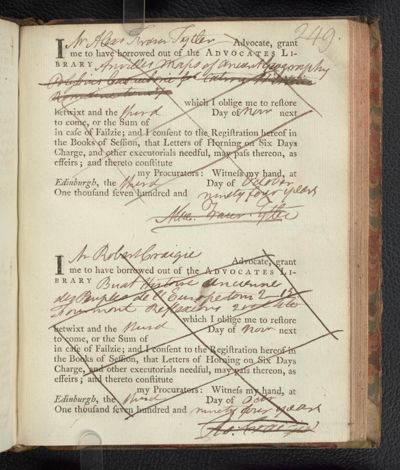 249.
I Mr Alexr Fraser Tytler Advocate, grant
me to have borrowed out of the ADVOCATES LI-
BRARY Anvilles Maps of Ancient Geography
which I oblige me to restore
betwixt and the third Day of Novr next
to come, or the Sum of
in case of Failzie; and I consent to the Registration hereof in
the Books of Session, that Letters of Horning on Six Days
Charge, and other executorials needful, may pass thereon, as
effeirs; and thereto constitute
my Procurators: Witness my hand, at
Edinburgh, the third Day of October
One thousand seven hundred and ninety four years
Alex. Fraser Tytler
I Mr Robert Craigie Advocate, grant
me to have borrowed out of the ADVOCATES LI-
BRARY Buat Histoire ancienne
des Peuples de l'Europe
which I oblige me to restore
betwixt and the third Day of Novr next
to come, or the Sum of
in case of Failzie; and I consent to the Registration hereof in
the Books of Session, that Letters of Horning on Six Days
Charge, and other executorials needful, may pass thereon, as
effeirs; and thereto constitute
my Procurators: Witness my hand, at
Edinburgh, the third Day of Octr
One thousand seven hundred and ninety four years
Ro. Craigie